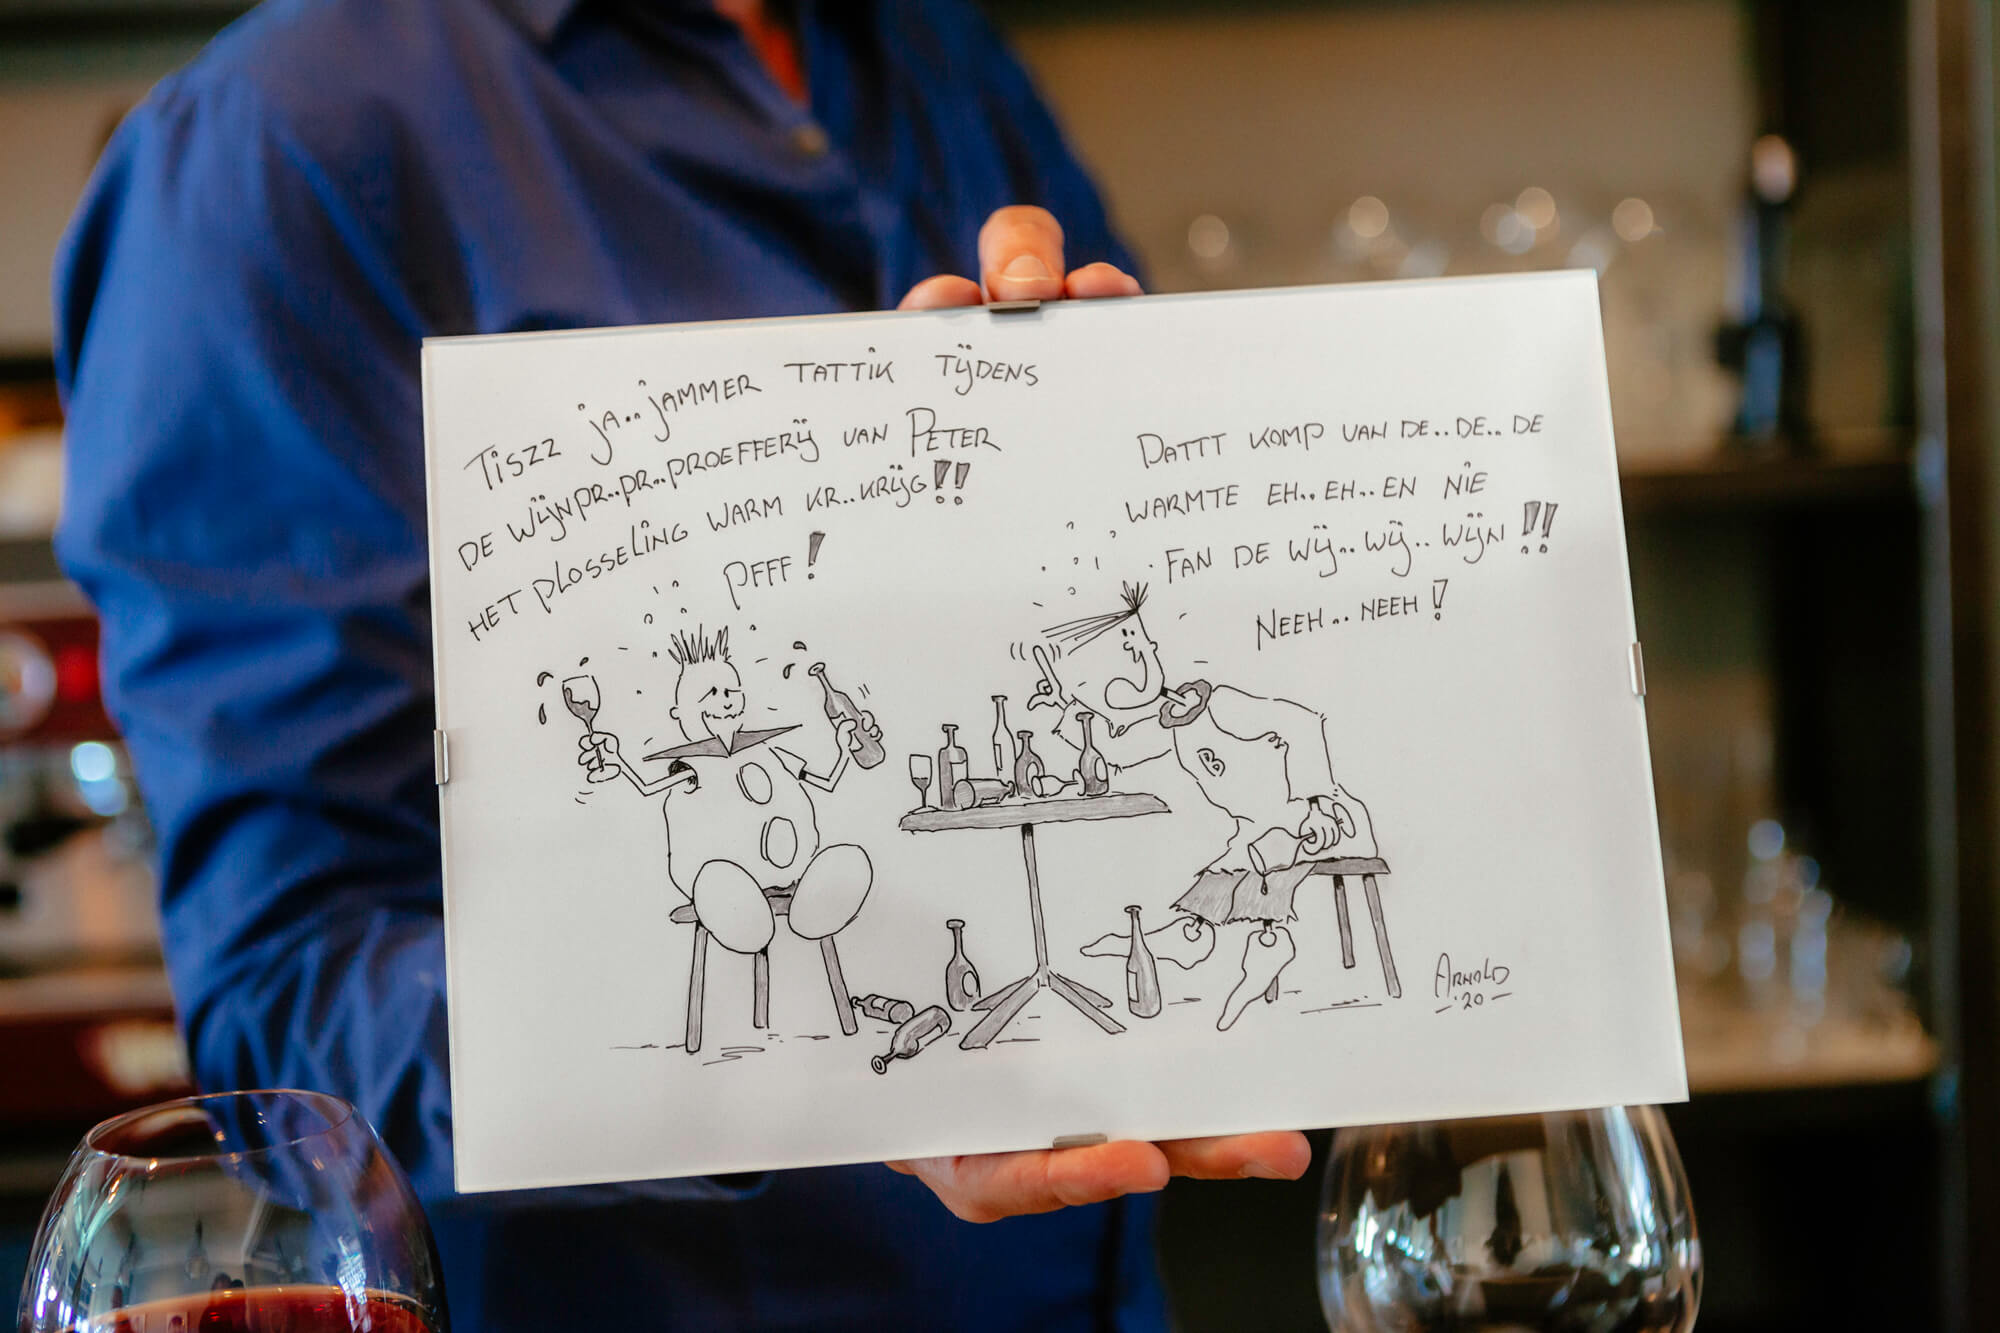 TISZZ JA..JAMMER TATTIK TIJDENS
DE WIJNPR..PR..PROEFFERIJ VAN PETER
HET PLOSSELING WARM KR..KRIJG!!
PFFF!
DATTT KOMP VAN DE..DE..DE
WARMTE EH..EH..EN NIE
FAN DE WIJ..WIJ..WIJN!!
NEEH..NEEH!
B
ARNOLD
'20